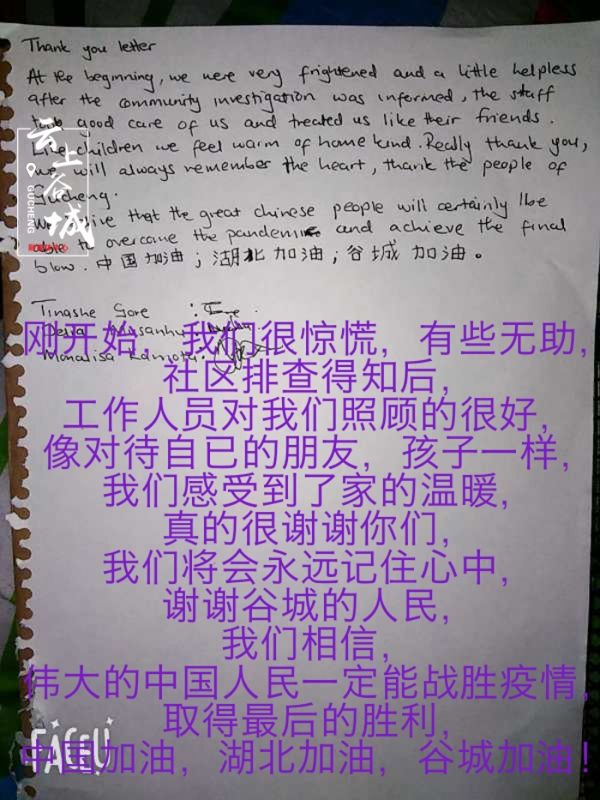 Thank you letter
At the beginning, we were very frightened and a little helpless
after the community investigation was informed, the staff
took good care of us and treated us like their friends.
Like children we feel warm of home kind. Really thank you,
we will always remember the heart, thank the people of
Gucheng.
We believe that the great chinese people will certainly be
able to overcame the pandemic and achieve the final
blow. 中国加油；湖北加油；谷城加油。
云上谷城
GUCHENG
Tinashe Gore :
Monalisa
刚开始，我们很惊慌，有些无助，
社区排查得知后，
工作人员对我们照顾的很好，
像对待自已的朋友，孩子一样，
我们感受到了家的温暖，
真的很谢谢你们，
我们将会永远记住心中，
谢谢谷城的人民，
我们相信，
伟大的中国人民一定能战胜疫情，
取得最后的胜利，
中国加油，湖北加油，谷城加油！
FACEU